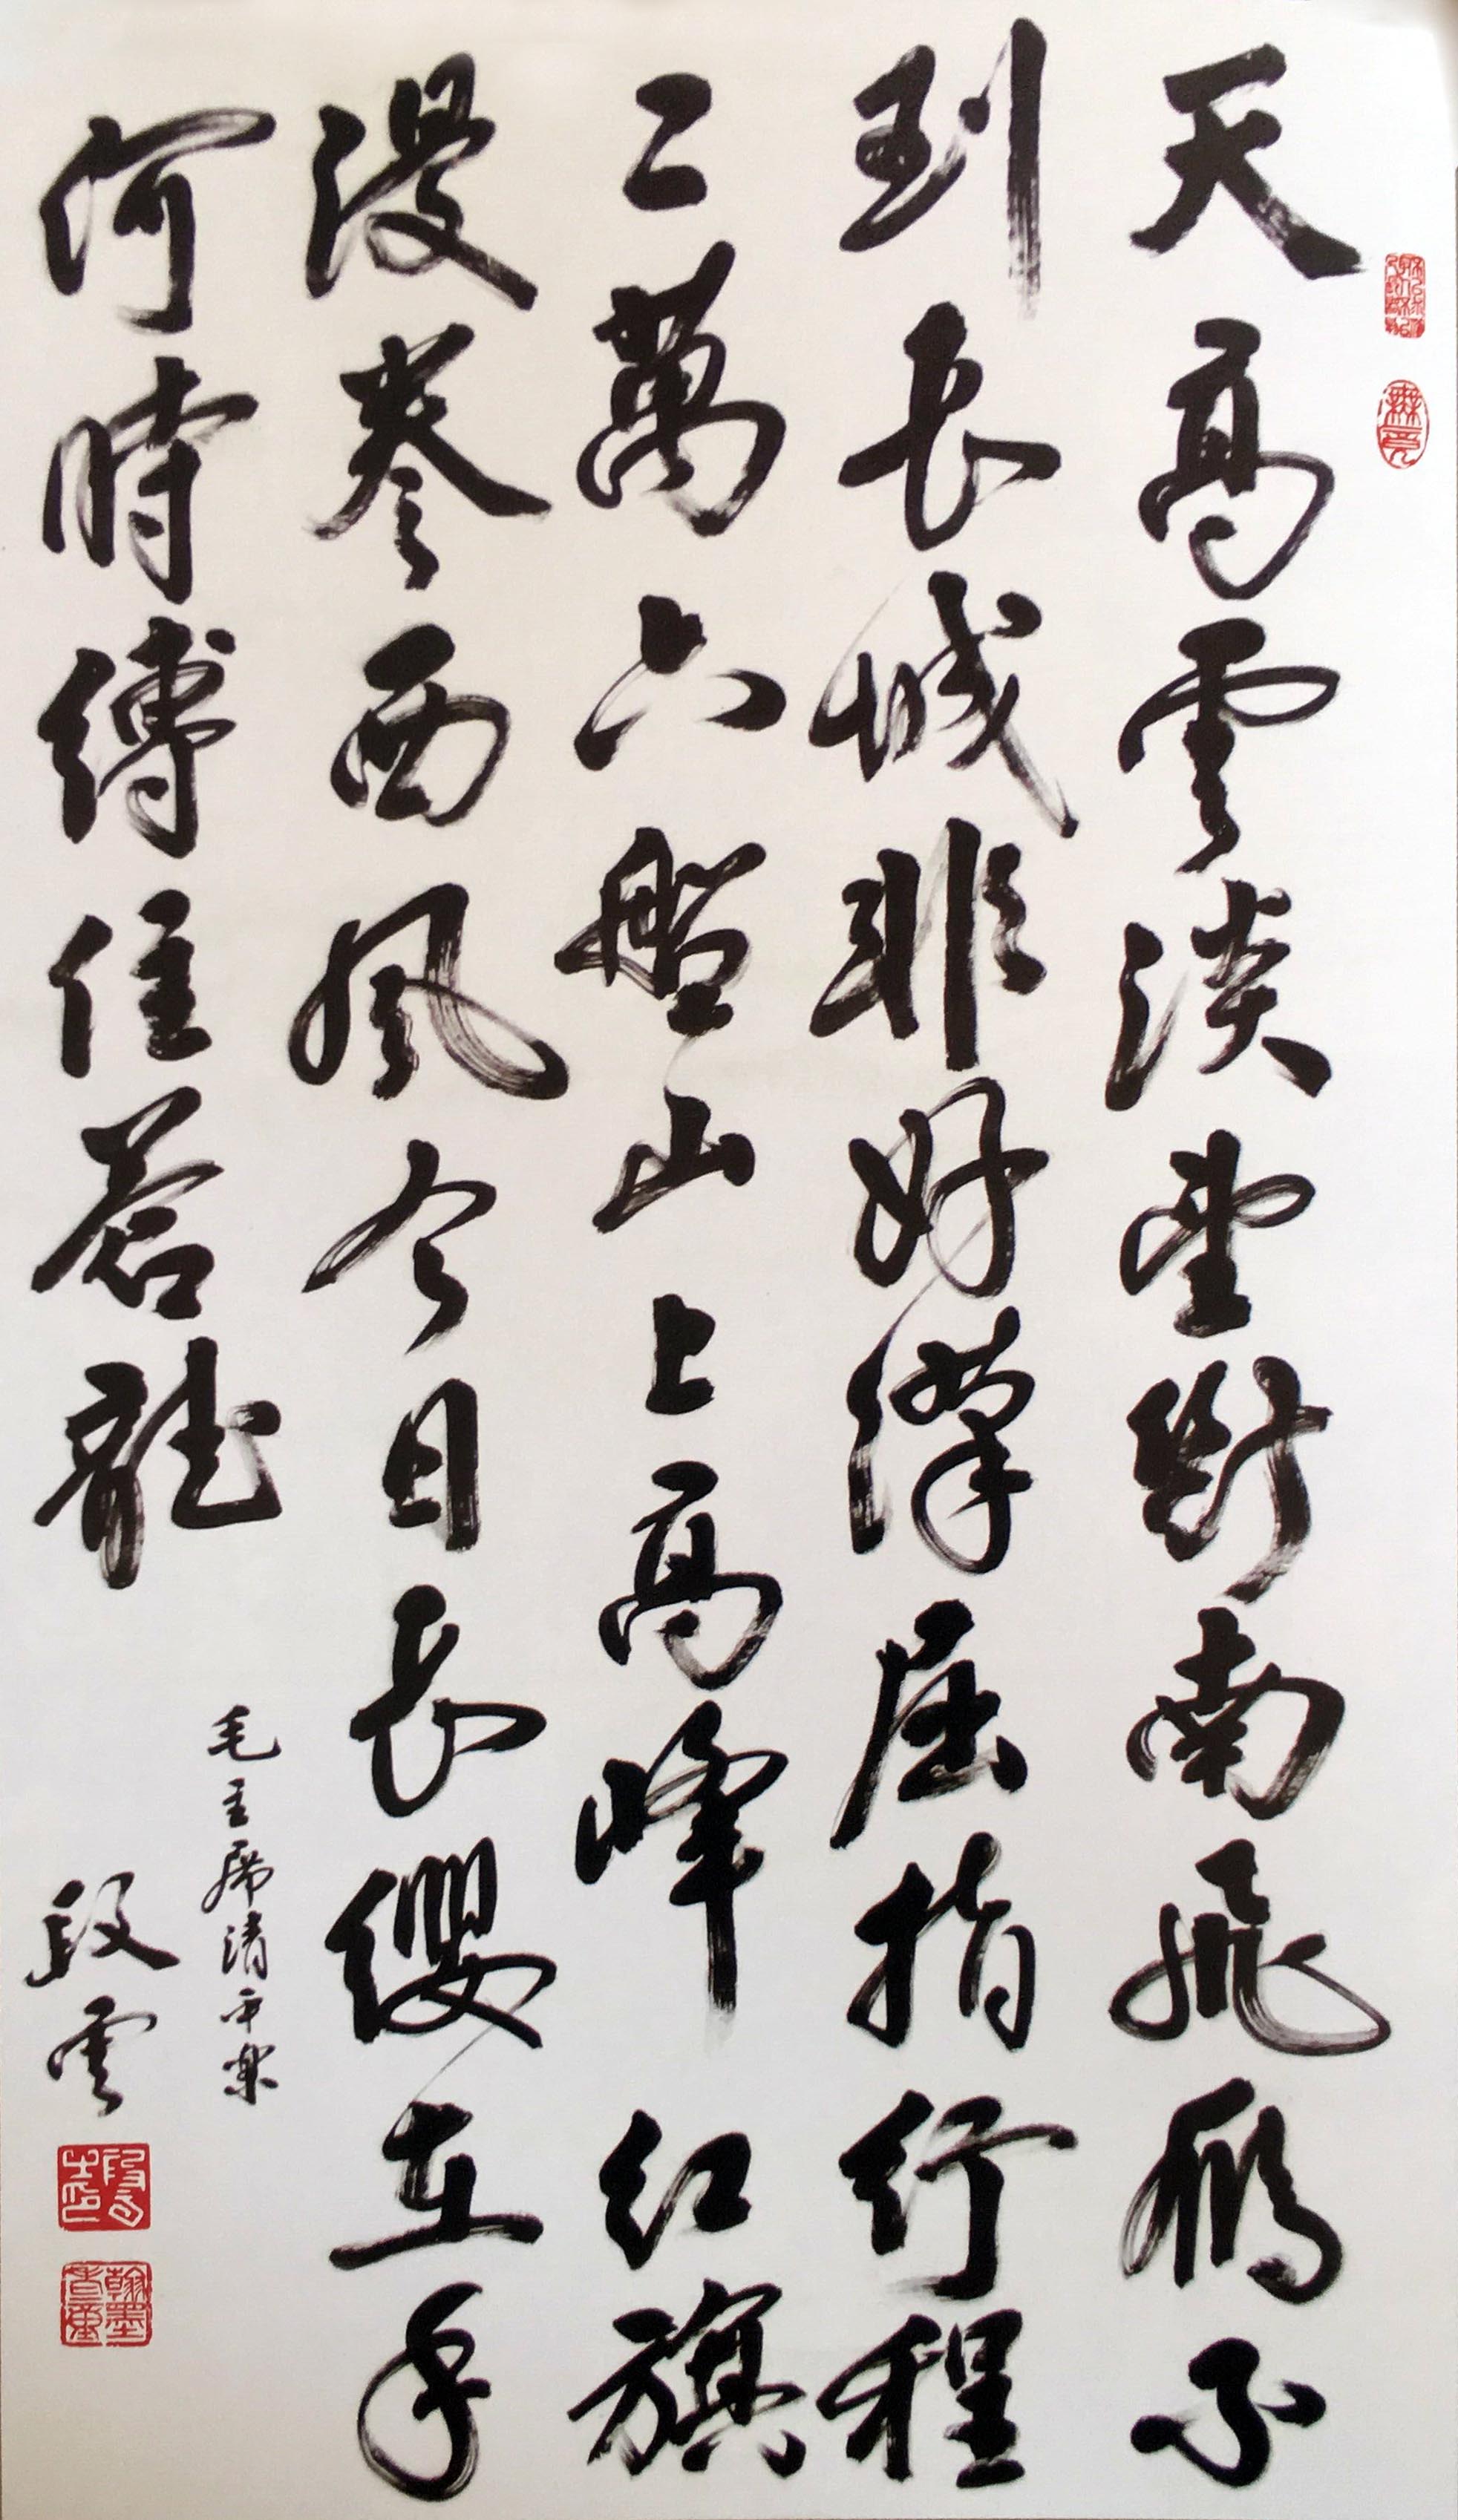 天高雲淡望斷南飛雁不
到長城非好漢屈指行程
二萬六盤山上高峰紅旗
漫卷西風今日長纓在手
何時縛住蒼龍
毛主席清平樂
段雲
段雲之印